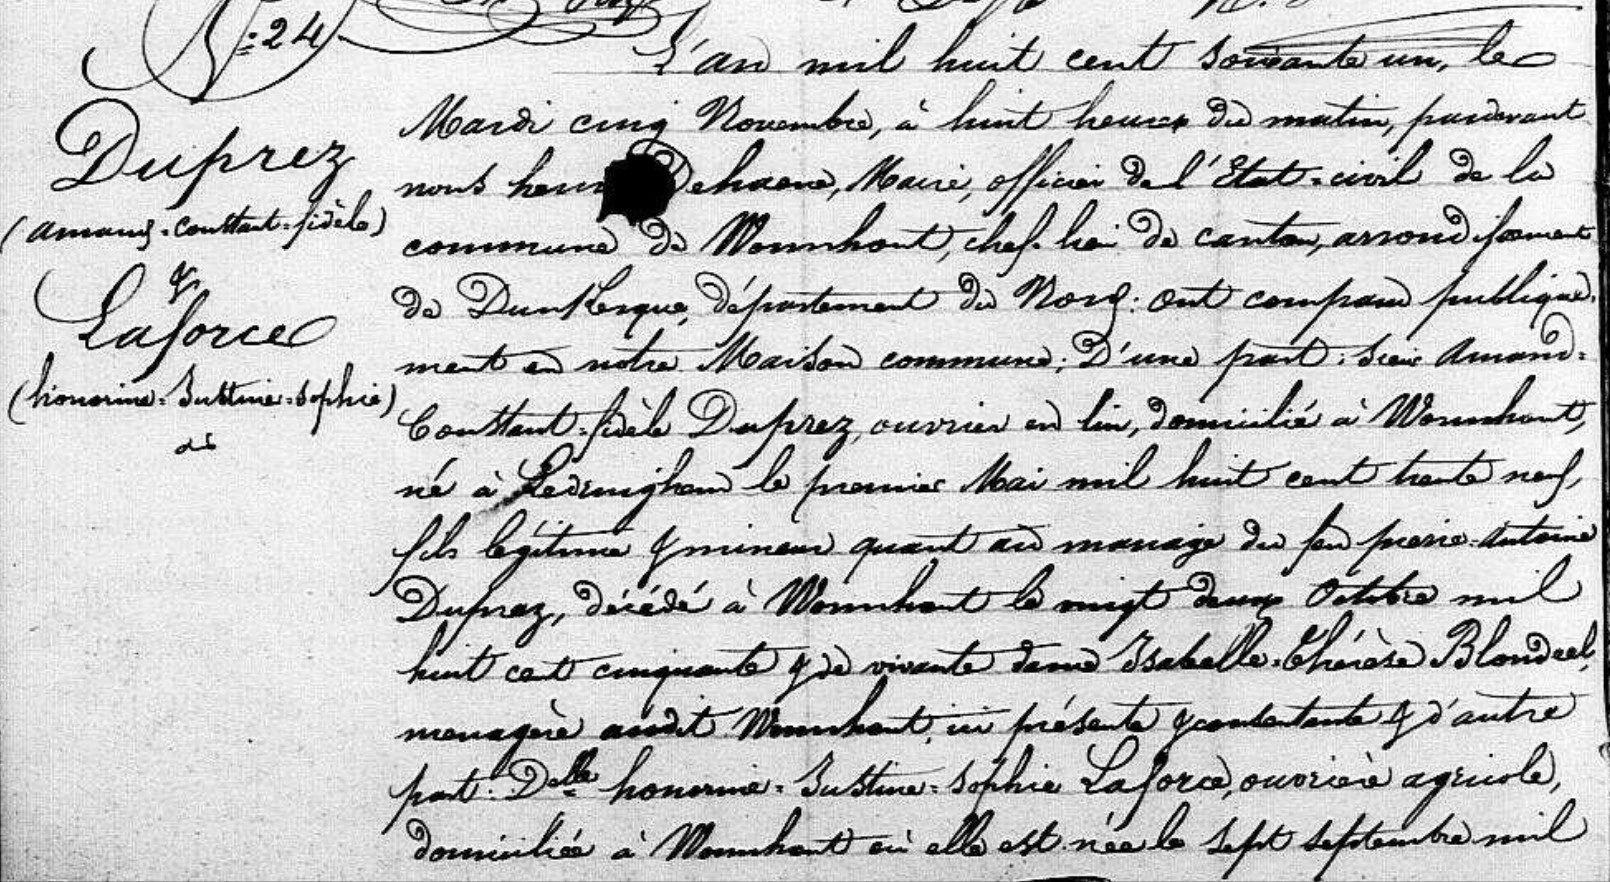 N.º 24
Duprez
(amand=Constant=fidèle)
&
Laforce
(honorine=Justine=Sophie)
L'an mil huit cent soixante un, le
Mardi cinq Novembre, à huit heures du matin, pardevant
nous henri Dehaene, Maire, officier de l'Etat=civil de la
commune de Wormhout, chef-lieu de canton, arrondissement
de Dunkerque, département du Nord: ont comparu publique=
ment en notre Maison commune; D'une part: Sieur Amand=
Constant=fidèle Duprez, ouvrier en lin, domicilié à Wormhout,
né à Ledringhem le premier Mai mil huit cent trente neuf,
fils légitime & mineur quant au mariage du feu pierre=Antoine
Duprez, décédé à Wormhout le vingt deux Octobre mil
huit cent cinquante & de vivante dame Isabelle=Thérèse Blondeel,
menagère audit Wormhout, ici présente & consentante & d'autre
part: Delle honorine=Justine=Sophie Laforce, ouvrière agricole,
domiciliée à Wormhout où elle est née le sept septembre mil